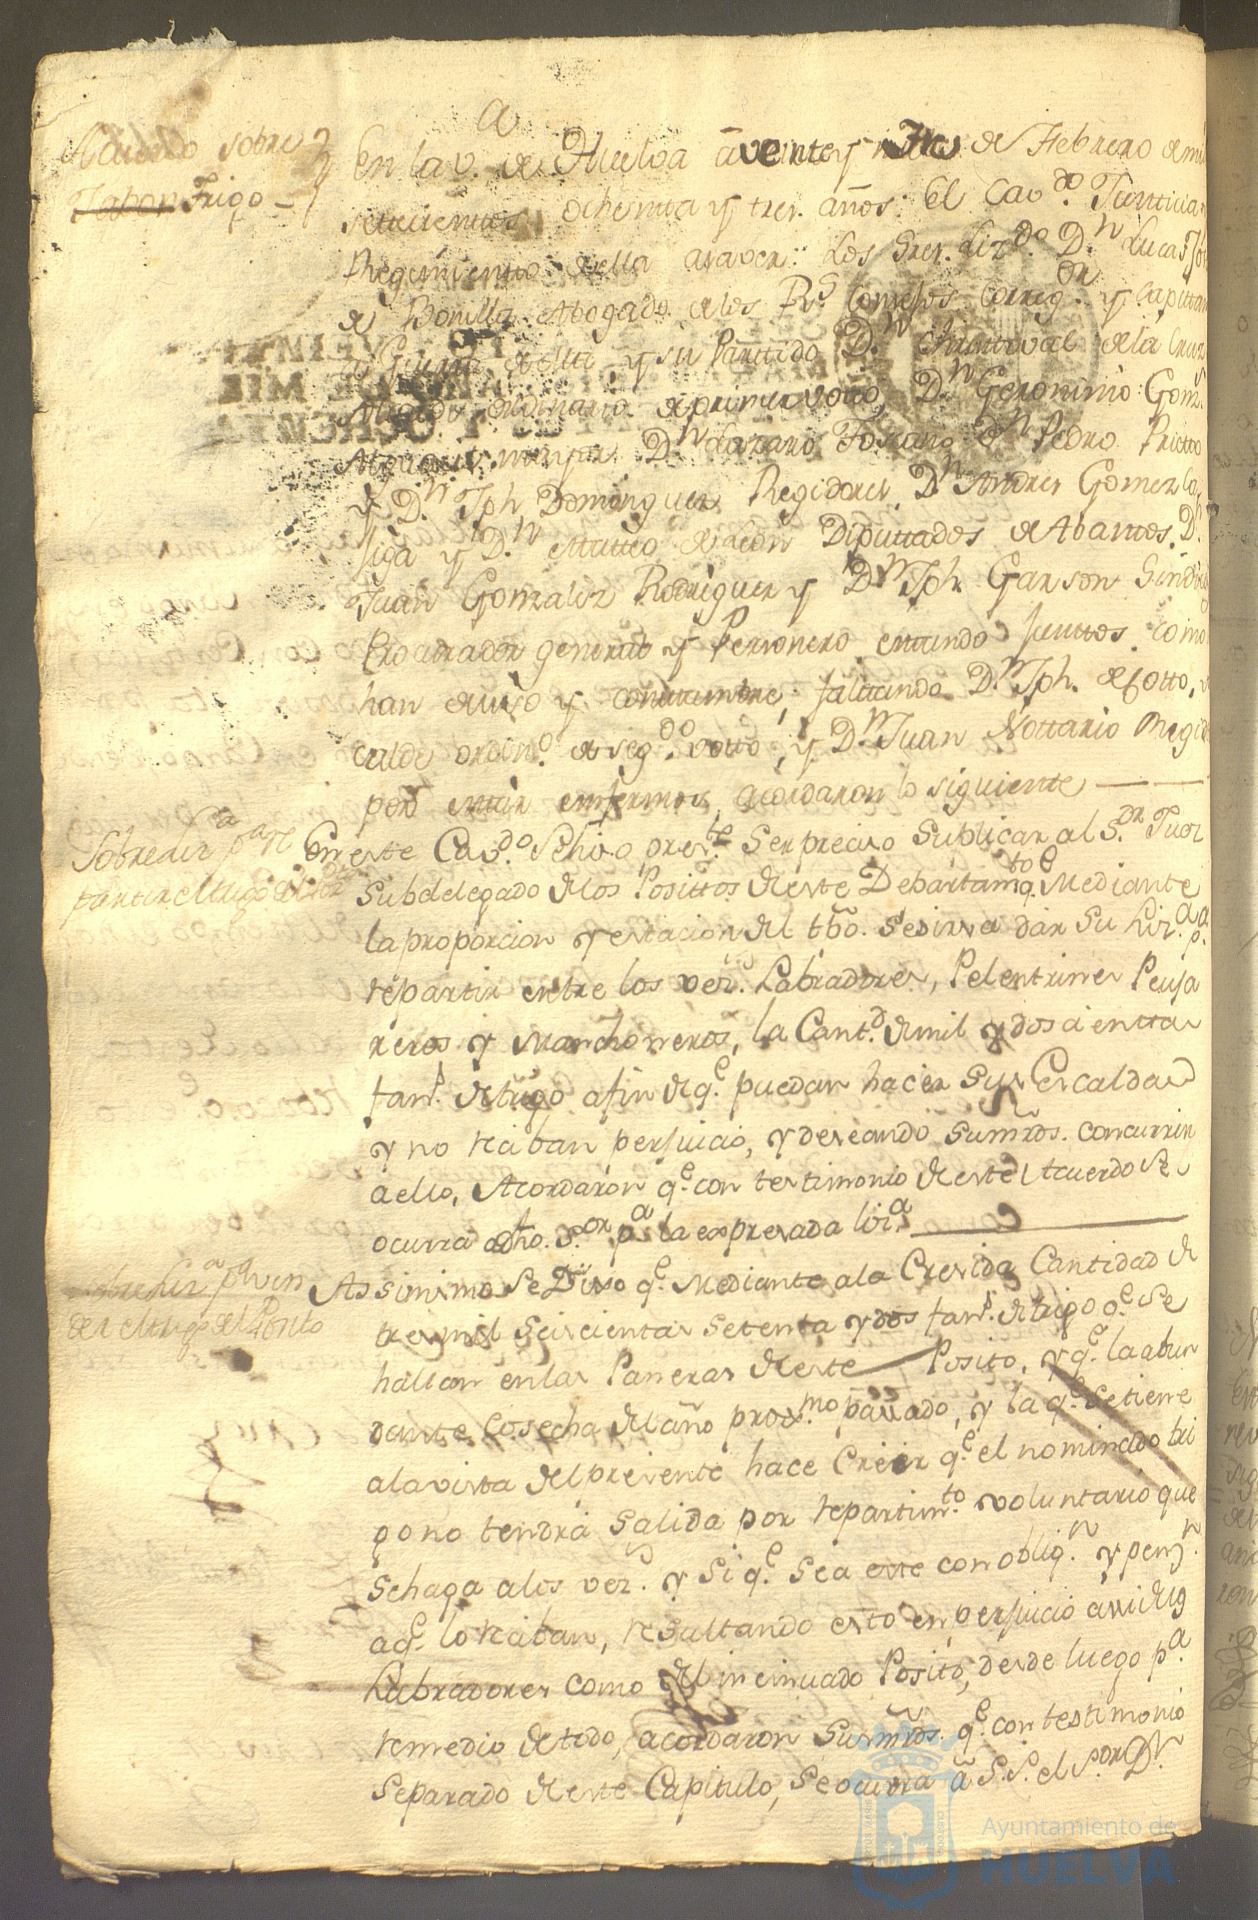 a
Acuerdo sobre
Jabon Trigo
En la v. de Huelva a veinte y tres de Febrero de mil
settecientos ochenta y tres años: El Cavdo. Justicia y
Regimiento della asaver: Los Sres. Lizdo. Dn. Lucas Jph
de Bonilla Abogado de los Rs. Consejos Corregor. y Capitan
a Guerra de esta y su Partido Dn. Christoval de la Cruz
Alcalde ordinario de primer votto, Dn. Geronimo Goms.
Alguacil mayor Dn. Lazaro Toscano Dn. Pedro Prieto
y Dn. Jph Dominguez Regidores, Dn. Andres Gomez
y Dn. Matteo de Leon Diputtados de Abastos. Dn.
Juan Gonzalez Rodriguez y Dn. Jph. Garson Sindico
Procurador general y Personero estando juntos como
han de uso y costumbre, faltando Dn. Jph. de Cotto, al
calde ordino. de segdo. votto, y Dn. Juan Nottario Regidr
por estar enfermos, acordaron lo siguiente
Sobre liza. pa. re
partir el trigo del
En este Cavdo. se hizo preste. ser preciso suplicar al Sor. Juez
Subdelegado de los Posittos de este Departamto. qe. Mediante
la proporcion y estacion del tpo. se sirva dar su Liza. pa.
repartir entre los vezs. Labradores, Pelentrines Peuja
reros y Manchoneros, la Cantd. de mil y doscientas
fans. de trigo a fin de qe. puedan hacer sus Escaldas
y no reciban perjuicio, y deseando sus mrds. concurrir
a ello, Acordaron qe. con testimonio de este Acuerdo se
ocurra a dho. Sor. pa. la expresada liza.
Sobre liza. pa. ven
der el trigo del Posito
Assimismo se Dixo qe. Mediante a la Crecida Cantidad de
tres mil seiscientas setenta y dos fans. de trigo qe. se
hallan en las Paneras de este Posito, y qe. la abun
dante Cosecha del año proxmo. passado, y la qe. se tiene
a la vista del presente hace Creer qe. el nominado tri
go no tendrá salida por repartimto. voluntario que
se haga a los vezs. y si qe. sea este con obligon. y pensn.
a qe. lo reciban, resultando esto en perjuicio assi de los
Labradores como del incinuado Posito, desde luego pa.
remedio de todo, acordaron sus mrds. qe. con testimonio
separado de este Capitulo, se ocurra á S.S. el Sor. Dn.
Ayuntamiento de
HUELVA